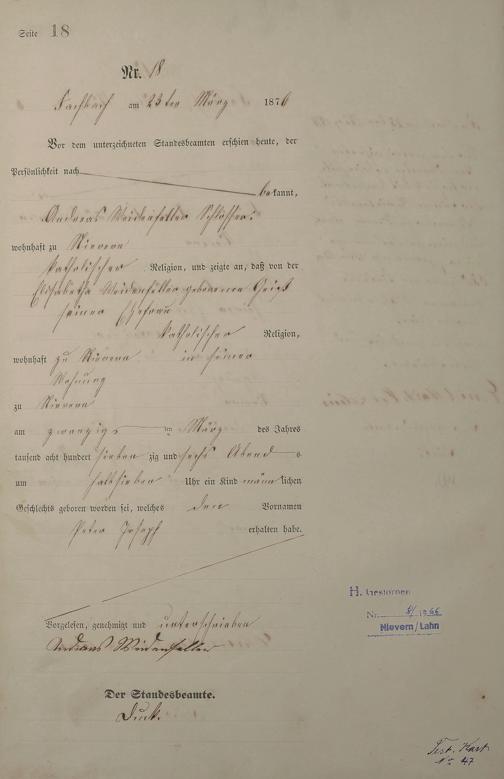 Seite 18
Nr. 18
Fachbach am 23ten März 1876
Vor dem unterzeichneten Standesbeamten erschien heute, der
Persönlichkeit nach
bekannt,
Andreas Weidenfeller Schlosser
wohnhaft zu Nievern
katholischer Religion, und zeigte an, daß von der
Elisabetha Weidenfeller geborenen Geist
seiner Ehefrau
katholischer Religion,
wohnhaft zu Nievern in seiner
Wohnung
zu Nievern
am zwanzig ten März des Jahres
tausend acht hundert sieben zig und sechs Abends
um halbsieben Uhr ein Kind männlichen
Geschlechts geboren worden sei, welches den Vornamen
Peter Joseph erhalten habe.
Vorgelesen, genehmigt und unterschrieben
Andreas Weidenfeller
Der Standesbeamte.
H. Gestorben
Nr. 8/1966
Nievern/Lahn
No 47